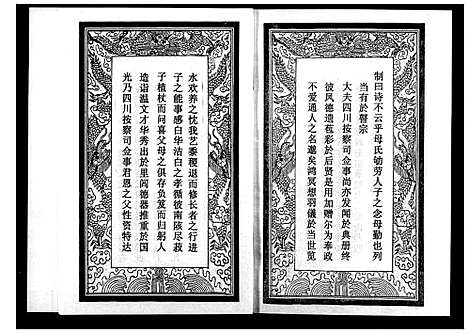 制曰诗不云乎母氏劬劳人子之念母勤也列
当有於瞽宗
大夫四川按察司佥事尚亦发闻於典册终
彼风德遗苞彩於后贤是用加赠尔为奉政
不爱通人之名邈矣鸿冥想羽儀於当世览
光乃四川按察司佥事君恩之父性资特达
造诣温文才华秀出於里闾德器推重於国
子植杖而问喜父母之俱存负笈而归躬人
子之能事感白华洁白之孝循彼南陔尽菽
水欢养之忱我艺黍稷退而修长者之行进